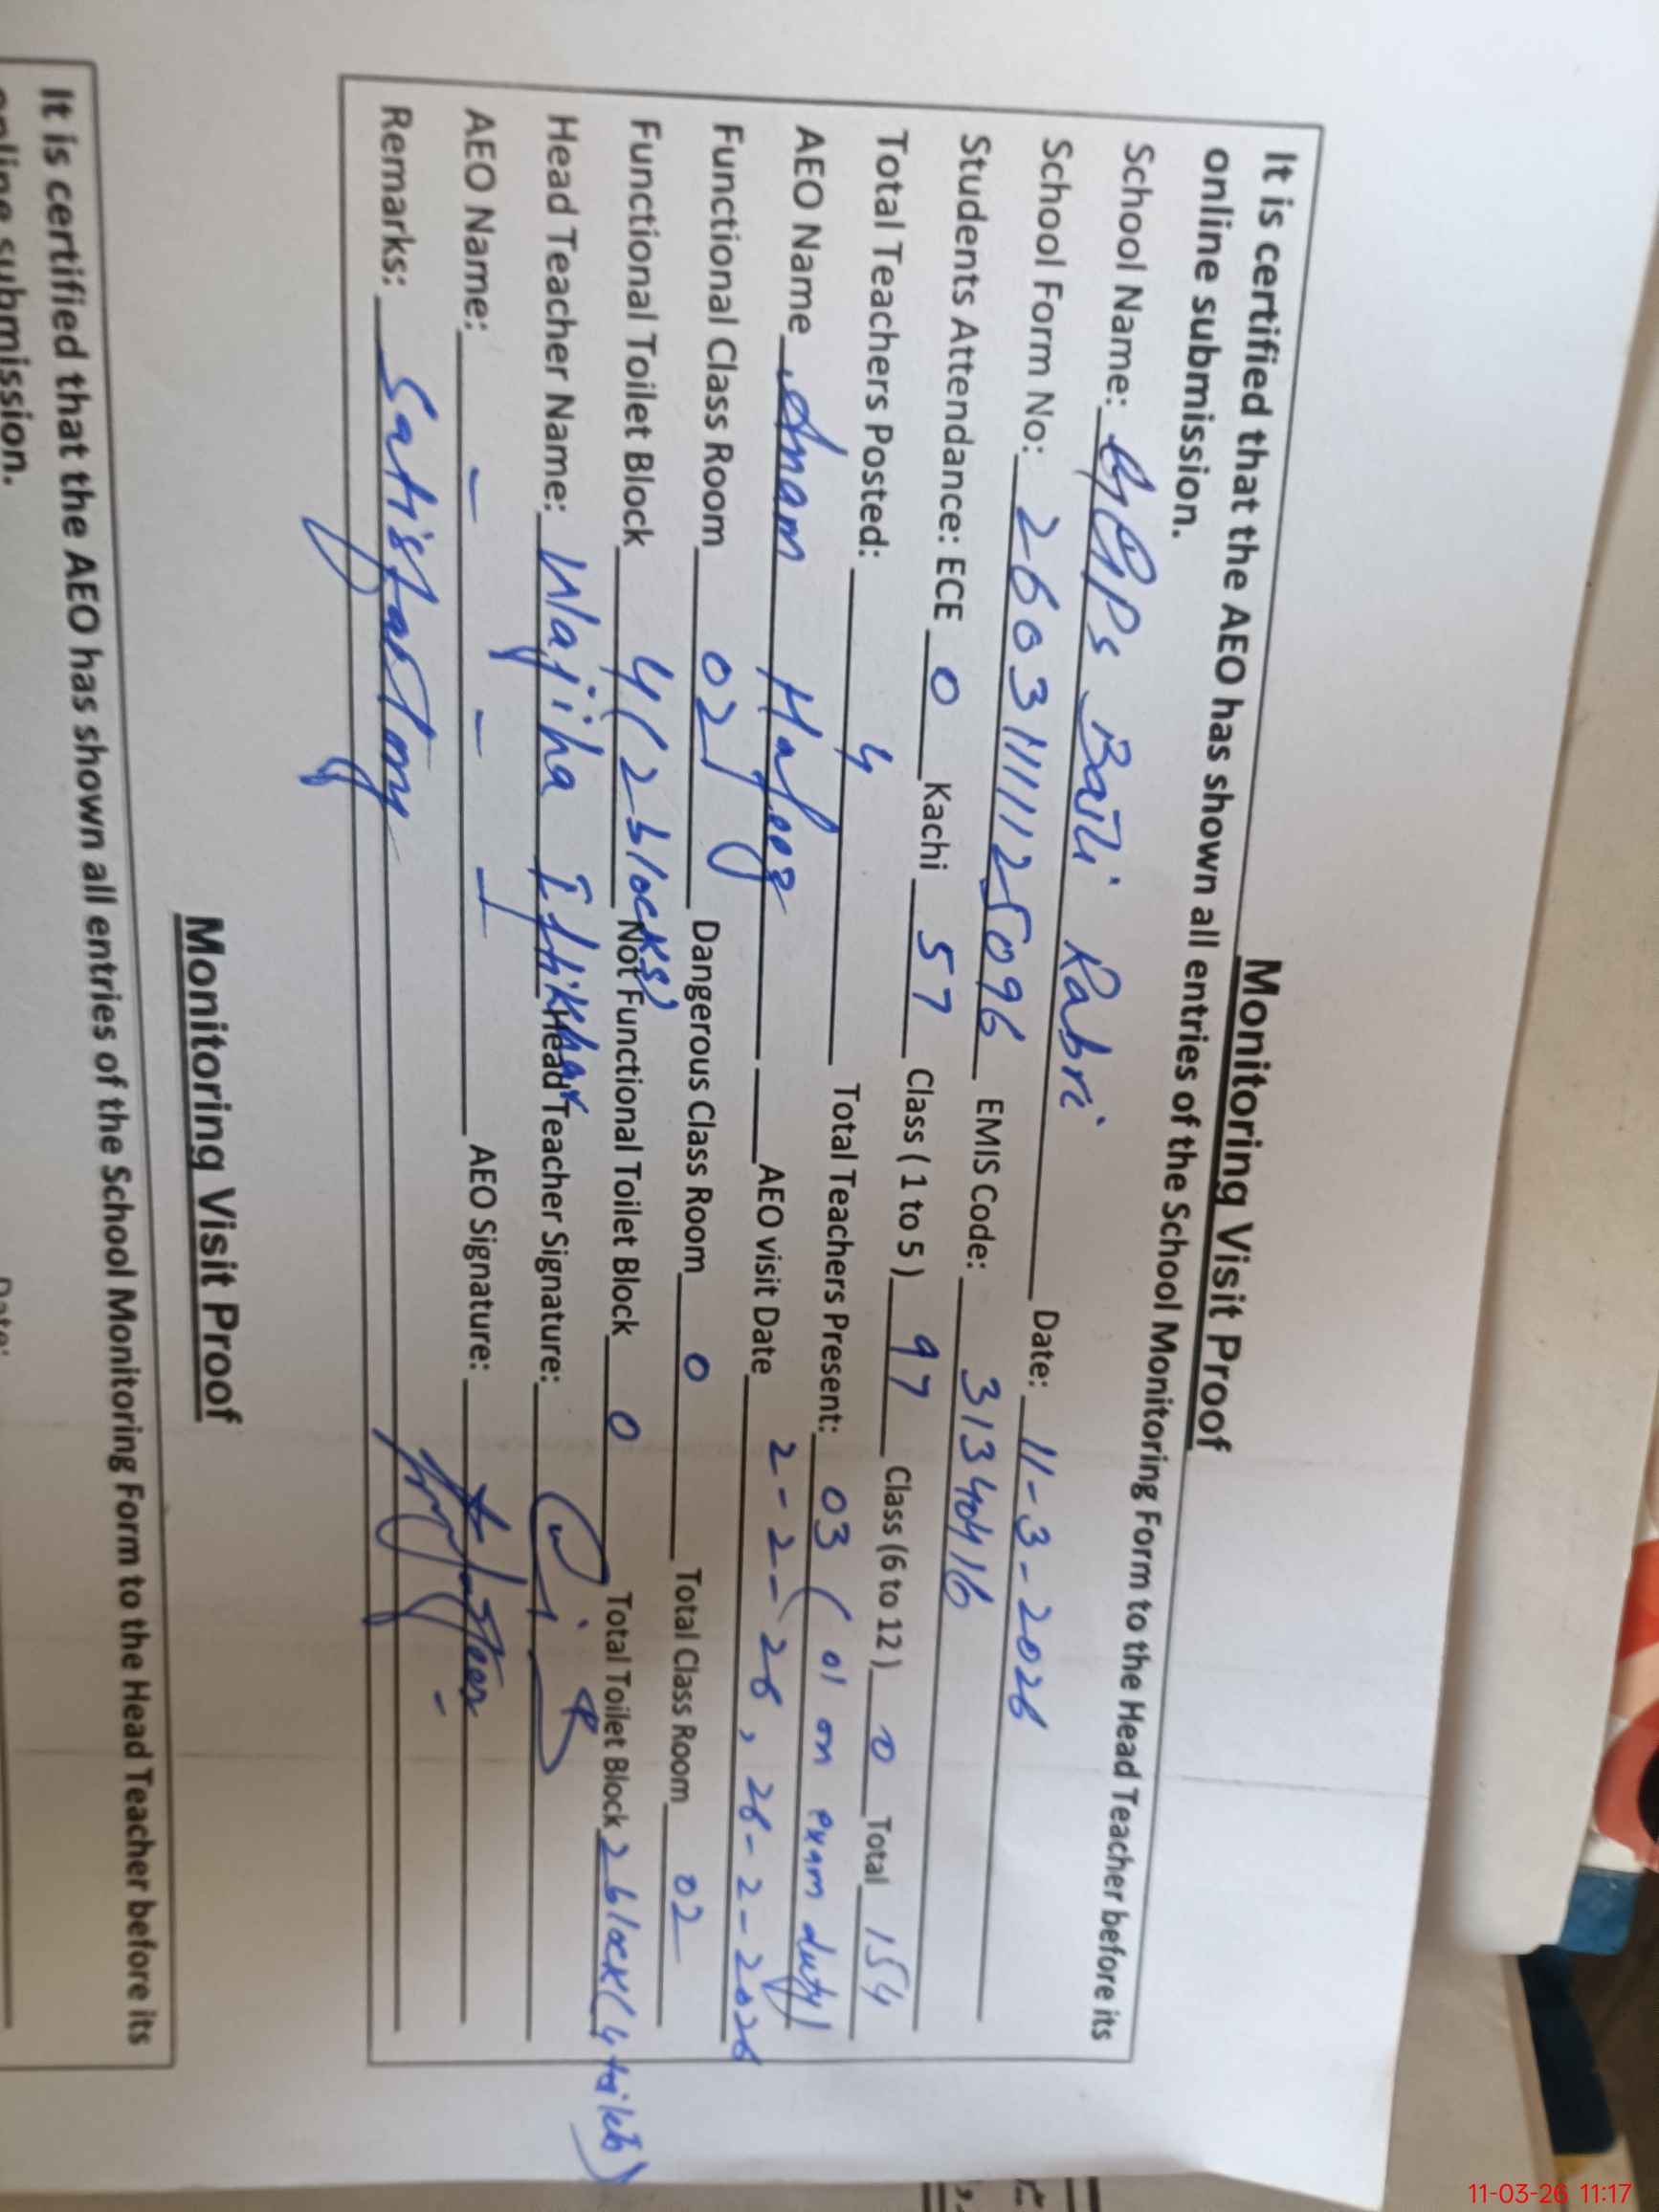 Monitoring Visit Proof
It is certified that the AEO has shown all entries of the School Monitoring Form to the Head Teacher before its
online submission.
School Name: GGPS Batli Rabri Date: 11-3-2026
School Form No: 26031111125096 EMIS Code: 31340416
Students Attendance: ECE 0 Kachi 57 Class ( 1 to 5 ) 97 Class (6 to 12 ) 0 Total 154
Total Teachers Posted: 4 Total Teachers Present: 03 ( 01 on exam duty)
AEO Name Anam Hafeez AEO visit Date 2-2-26, 26-2-2026
Functional Class Room 02 Dangerous Class Room 0 Total Class Room 02
Functional Toilet Block 4(2 blocks) Not Functional Toilet Block 0 Total Toilet Block 2 block(4 toilets)
Head Teacher Name: Wajiha Iftikhar Head Teacher Signature:
AEO Name: AEO Signature:
Remarks: Satisfactory
Monitoring Visit Proof
It is certified that the AEO has shown all entries of the School Monitoring Form to the Head Teacher before its
online submission.
Date:
11-03-26 11:17